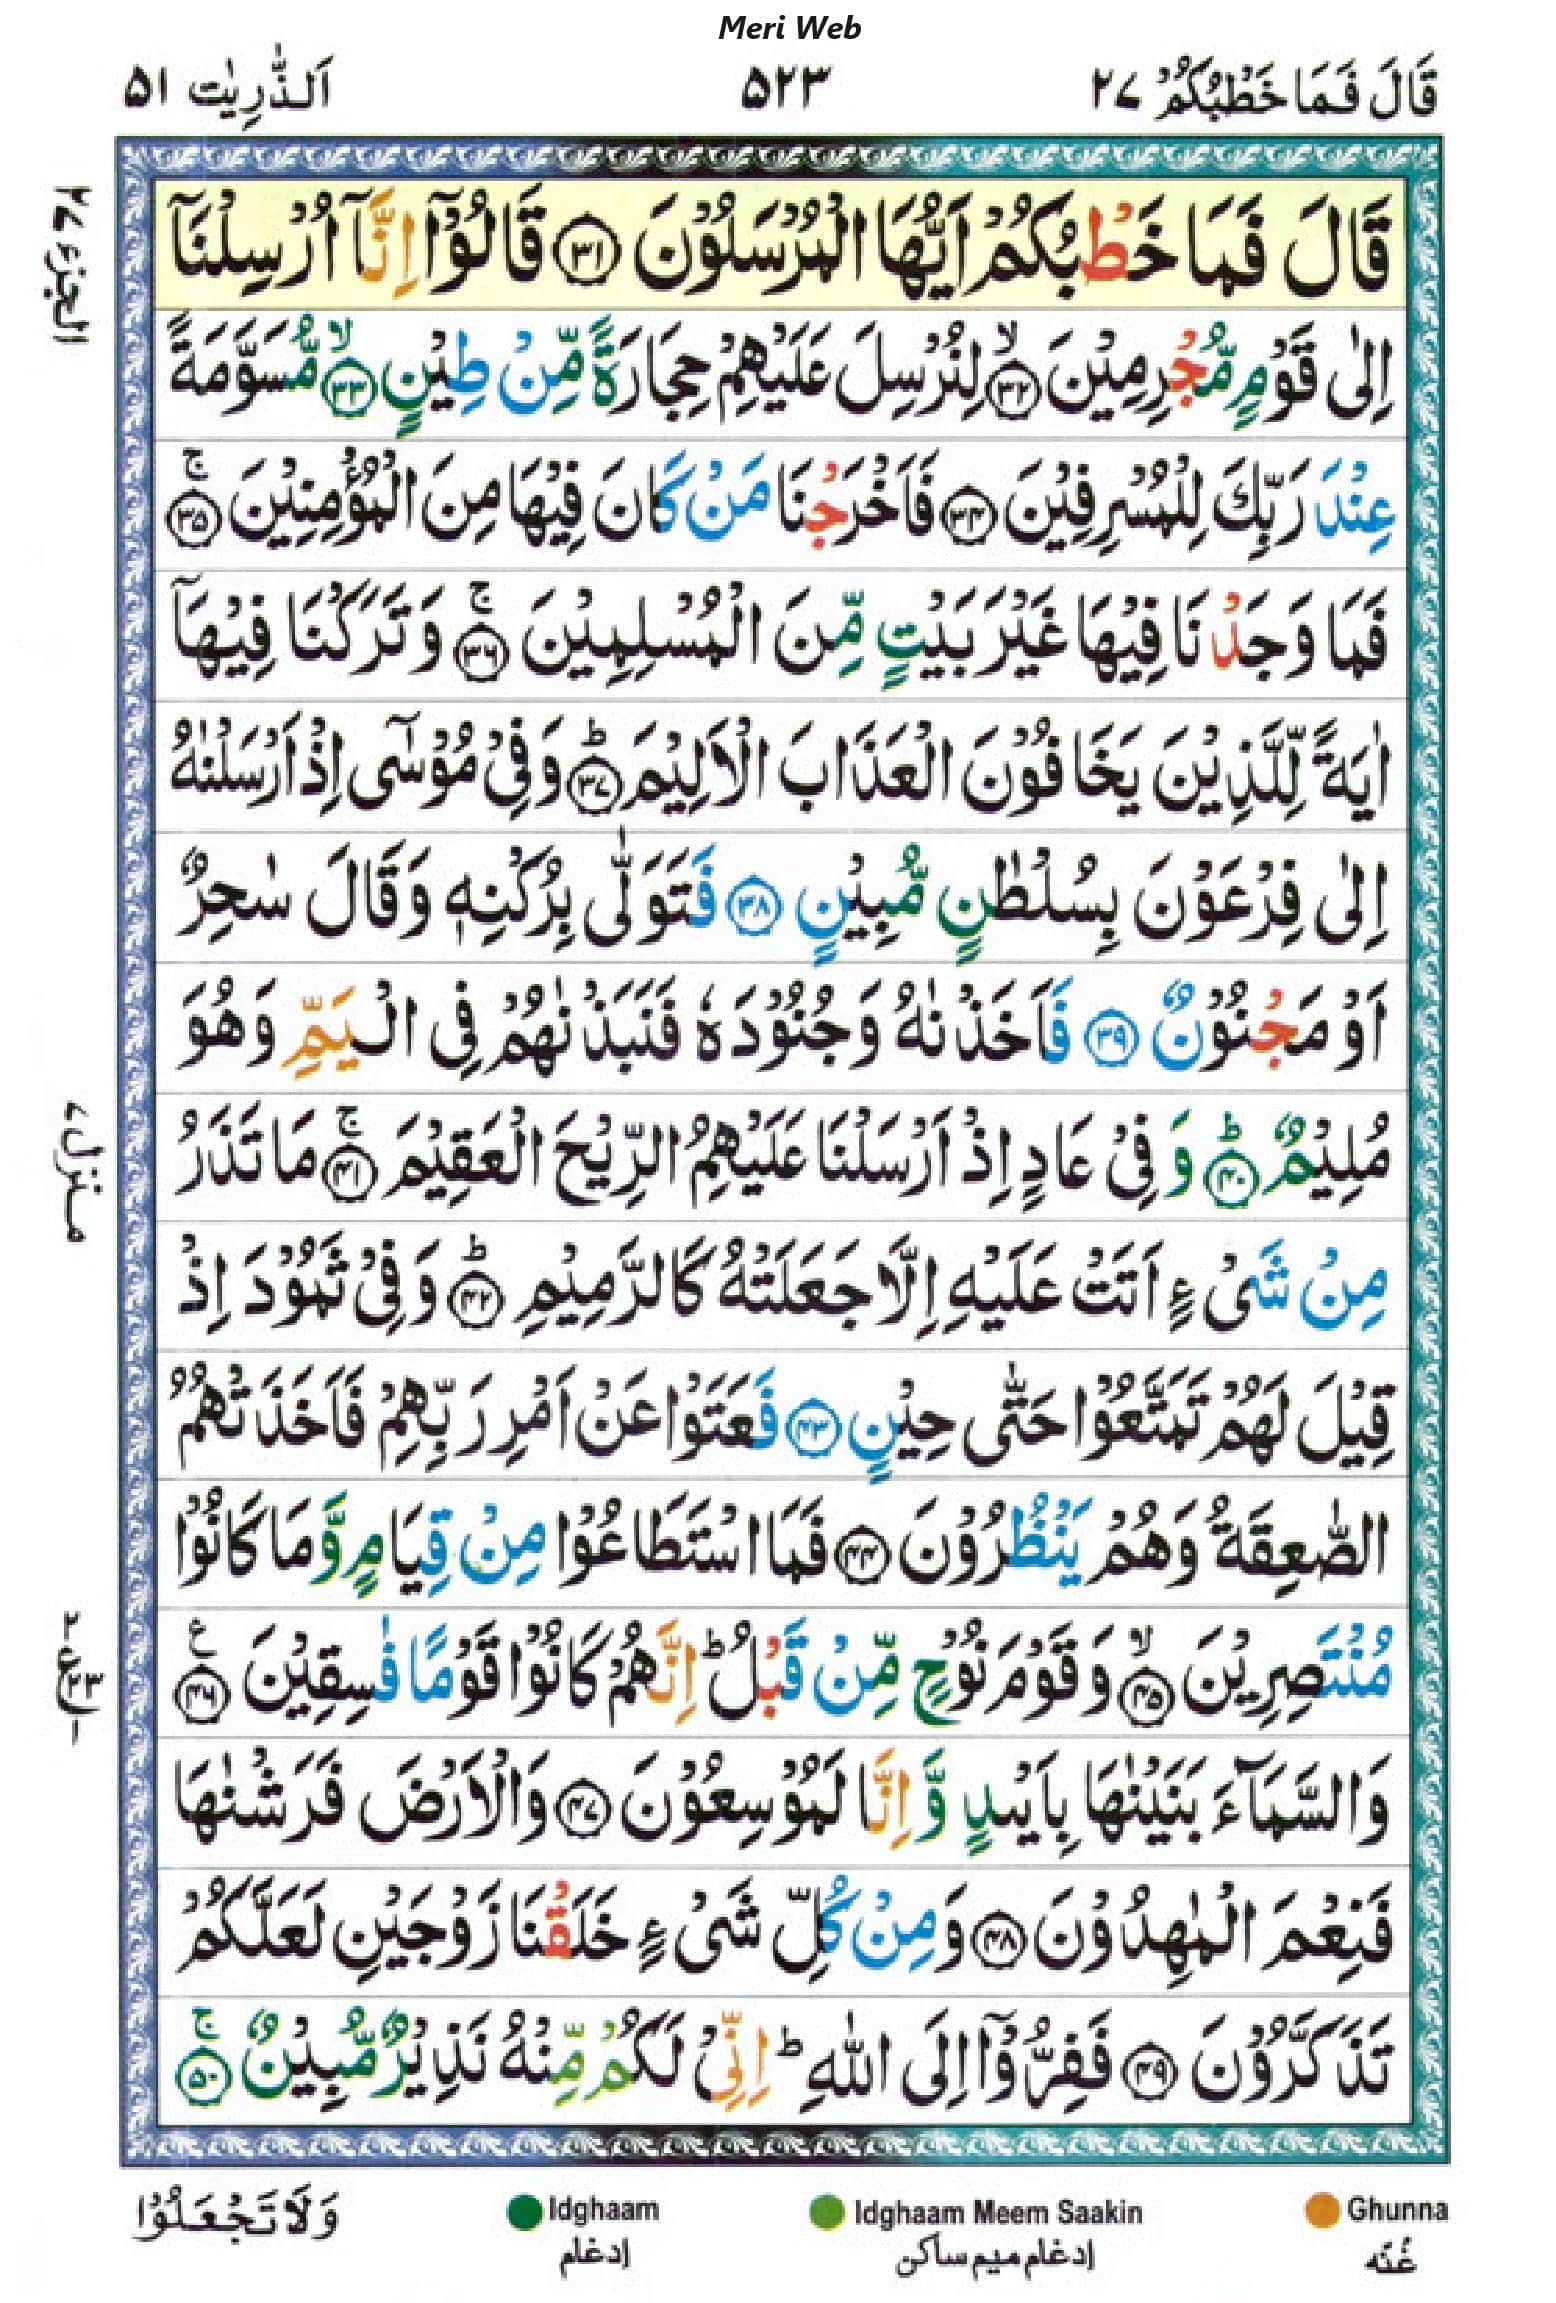 Meri Web
قَالَ فَمَا خَطْبُكُمْ ٢٧
٥٢٣
اَلذّٰرِيٰت ٥١
قَالَ فَمَا خَطْبُكُمْ اَيُّهَا الْمُرْسَلُوْنَ ﴿٣١﴾ قَالُوْۤا اِنَّاۤ اُرْسِلْنَاۤ
اِلٰى قَوْمٍ مُّجْرِمِيْنَ ﴿٣٢﴾ۙ لِنُرْسِلَ عَلَيْهِمْ حِجَارَةً مِّنْ طِيْنٍ ﴿٣٣﴾ۙ مُّسَوَّمَةً
عِنْدَ رَبِّكَ لِلْمُسْرِفِيْنَ ﴿٣٤﴾ فَاَخْرَجْنَا مَنْ كَانَ فِيْهَا مِنَ الْمُؤْمِنِيْنَ ﴿٣٥﴾ۚ
فَمَا وَجَدْنَا فِيْهَا غَيْرَ بَيْتٍ مِّنَ الْمُسْلِمِيْنَ ﴿٣٦﴾ۚ وَ تَرَكْنَا فِيْهَاۤ
اٰيَةً لِّلَّذِيْنَ يَخَافُوْنَ الْعَذَابَ الْاَلِيْمَ ﴿٣٧﴾ؕ وَ فِيْ مُوْسٰۤى اِذْ اَرْسَلْنٰهُ
اِلٰى فِرْعَوْنَ بِسُلْطٰنٍ مُّبِيْنٍ ﴿٣٨﴾ فَتَوَلّٰى بِرُكْنِهٖ وَقَالَ سٰحِرٌ
اَوْ مَجْنُوْنٌ ﴿٣٩﴾ فَاَخَذْنٰهُ وَ جُنُوْدَهٗ فَنَبَذْنٰهُمْ فِى الْيَمِّ وَهُوَ
مُلِيْمٌ ﴿٤٠﴾ؕ وَ فِيْ عَادٍ اِذْ اَرْسَلْنَا عَلَيْهِمُ الرِّيْحَ الْعَقِيْمَ ﴿٤١﴾ۚ مَا تَذَرُ
مِنْ شَيْءٍ اَتَتْ عَلَيْهِ اِلَّا جَعَلَتْهُ كَالرَّمِيْمِ ﴿٤٢﴾ؕ وَ فِيْ ثَمُوْدَ اِذْ
قِيْلَ لَهُمْ تَمَتَّعُوْا حَتّٰى حِيْنٍ ﴿٤٣﴾ فَعَتَوْا عَنْ اَمْرِ رَبِّهِمْ فَاَخَذَتْهُمُ
الصّٰعِقَةُ وَهُمْ يَنْظُرُوْنَ ﴿٤٤﴾ فَمَا اسْتَطَاعُوْا مِنْ قِيَامٍ وَّمَا كَانُوْا
مُنْتَصِرِيْنَ ﴿٤٥﴾ۙ وَ قَوْمَ نُوْحٍ مِّنْ قَبْلُ ؕ اِنَّهُمْ كَانُوْا قَوْمًا فٰسِقِيْنَ ﴿٤٦﴾ع
وَ السَّمَآءَ بَنَيْنٰهَا بِاَيْىدٍ وَّ اِنَّا لَمُوْسِعُوْنَ ﴿٤٧﴾ وَالْاَرْضَ فَرَشْنٰهَا
فَنِعْمَ الْمٰهِدُوْنَ ﴿٤٨﴾ وَ مِنْ كُلِّ شَيْءٍ خَلَقْنَا زَوْجَيْنِ لَعَلَّكُمْ
تَذَكَّرُوْنَ ﴿٤٩﴾ فَفِرُّوْۤا اِلَى اللّٰهِ ؕ اِنِّيْ لَكُمْ مِّنْهُ نَذِيْرٌ مُّبِيْنٌ ﴿٥٠﴾ۚ
الجزء ٢٧
منزل ٧
وَلَا تَجْعَلُوْا
Idghaam
ادغام
Idghaam Meem Saakin
ادغام میم ساکن
Ghunna
غُنّه